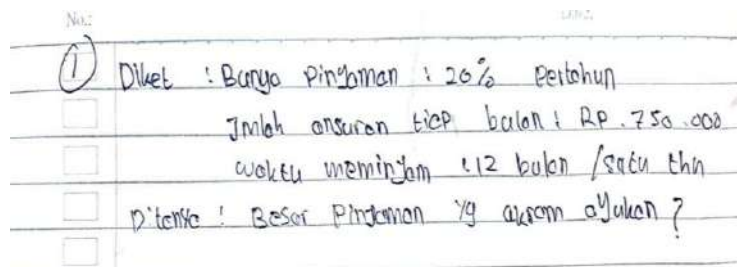 No.:
① Diket : Bunga Pinjaman : 20% Pertahun
Jmlah ansuran tiap bulan : RP. 750.000
waktu meminjam : 12 bulan / satu thn
Ditanya : Besar Pinjaman yg akram ajukan ?